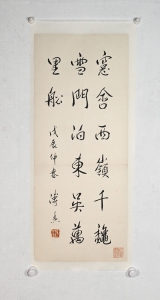 窻含西嶺千秋
雪門泊東吳萬
里船
戊辰仲春